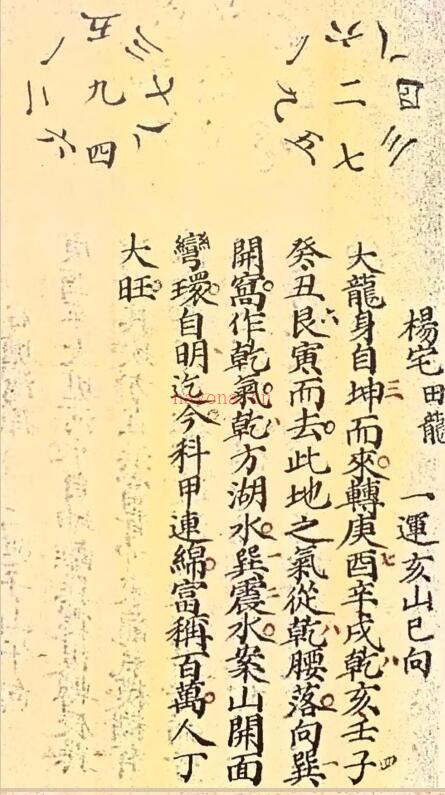 一 六 八
九 二 四
五 七 三
一 五 三
二 九 七
六 四 八
楊宅田龍 一運亥山巳向
大龍身自坤而來轉庚酉辛戌乾亥壬子
三 七 八 四
癸丑艮寅而去此地之氣從乾腰落向巽
六 八 一
開窩作乾氣乾方湖水巽震水案山開面
八 一 二
彎環自明迄今科甲連綿富稱百萬人丁
大旺